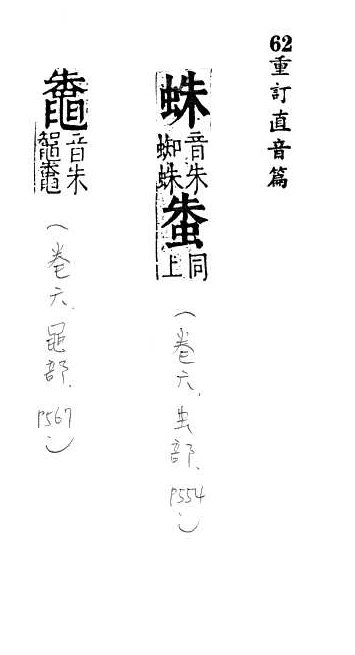 62重訂直音篇
蛛
音朱
蜘蛛
同
上
(卷六.虫部.P554)
鼄
音朱
鼅鼄
(卷六.黽部.P567)